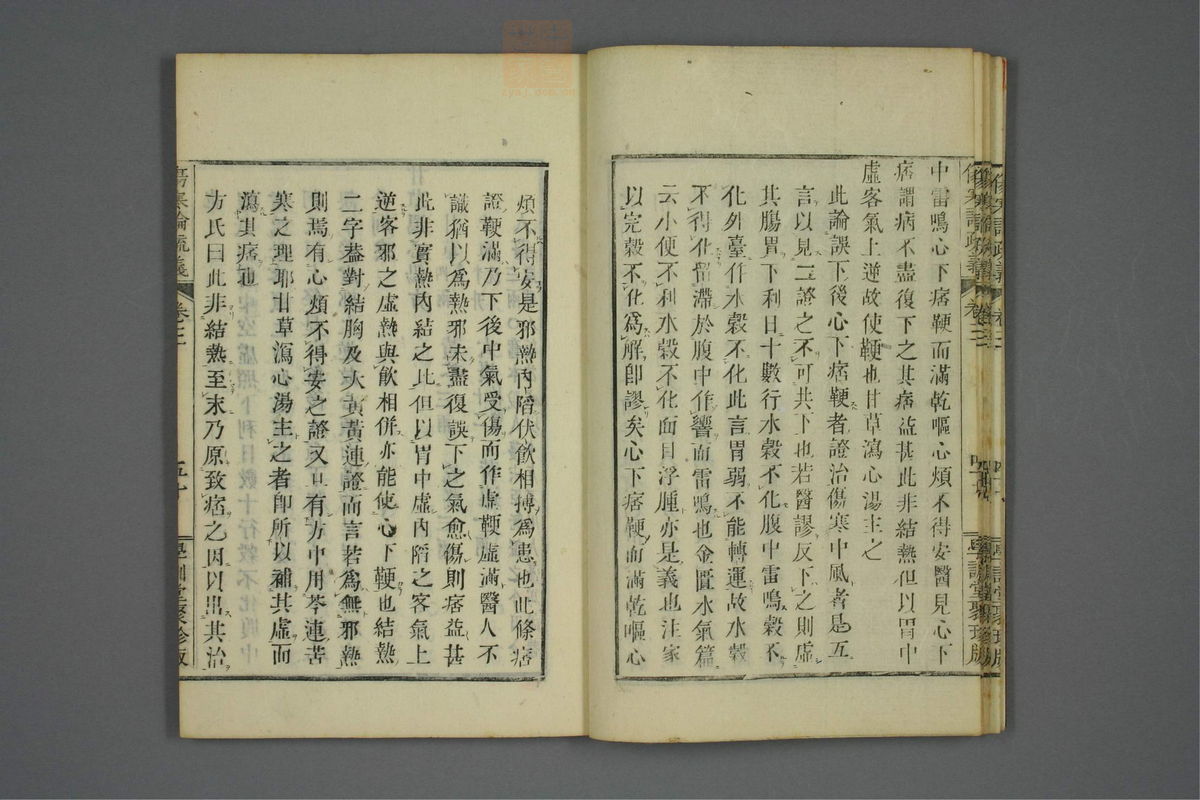 中雷鳴心下痞鞕而滿乾嘔心煩不得安醫見心下
痞謂病不盡復下之其痞益甚此非結熱但以胃中
虛客氣上逆故使鞕也甘草瀉心湯主之
此論誤下後心下痞鞕者證治傷寒中風者是五
言以見二證之不可共下也若醫謬反下之則虛
其腸胃下利日十數行水穀不化腹中雷鳴穀不
化外臺作水穀不化此言胃弱不能轉運故水穀
不得化留滯於腹中作響而雷鳴也金匱水氣篇
云小便不利水穀不化面目浮腫亦是義也注家
以完穀不化爲解卽謬矣心下痞鞕而滿乾嘔心
煩不得安是邪熱內陷伏飲相搏爲患也此條痞
證鞕滿乃下後中氣受傷而作虛鞕虛滿醫人不
識猶以爲熱邪未盡復誤下之氣愈傷則痞益甚
此非實熱內結之此但以胃中虛內陷之客氣上
逆客邪之虛熱與飲相併亦能使心下鞕也結熱
二字葢對結胸及大黃黃連證而言若爲無邪熱
則焉有心煩不得安之證又豈有方中用芩連苦
寒之理耶甘草瀉心湯主之者卽所以補其虛而
瀉其痞也
方氏曰此非結熱至末乃原致痞之因以出其治
傷寒論疏義
卷三
五十
學訓堂聚珍版